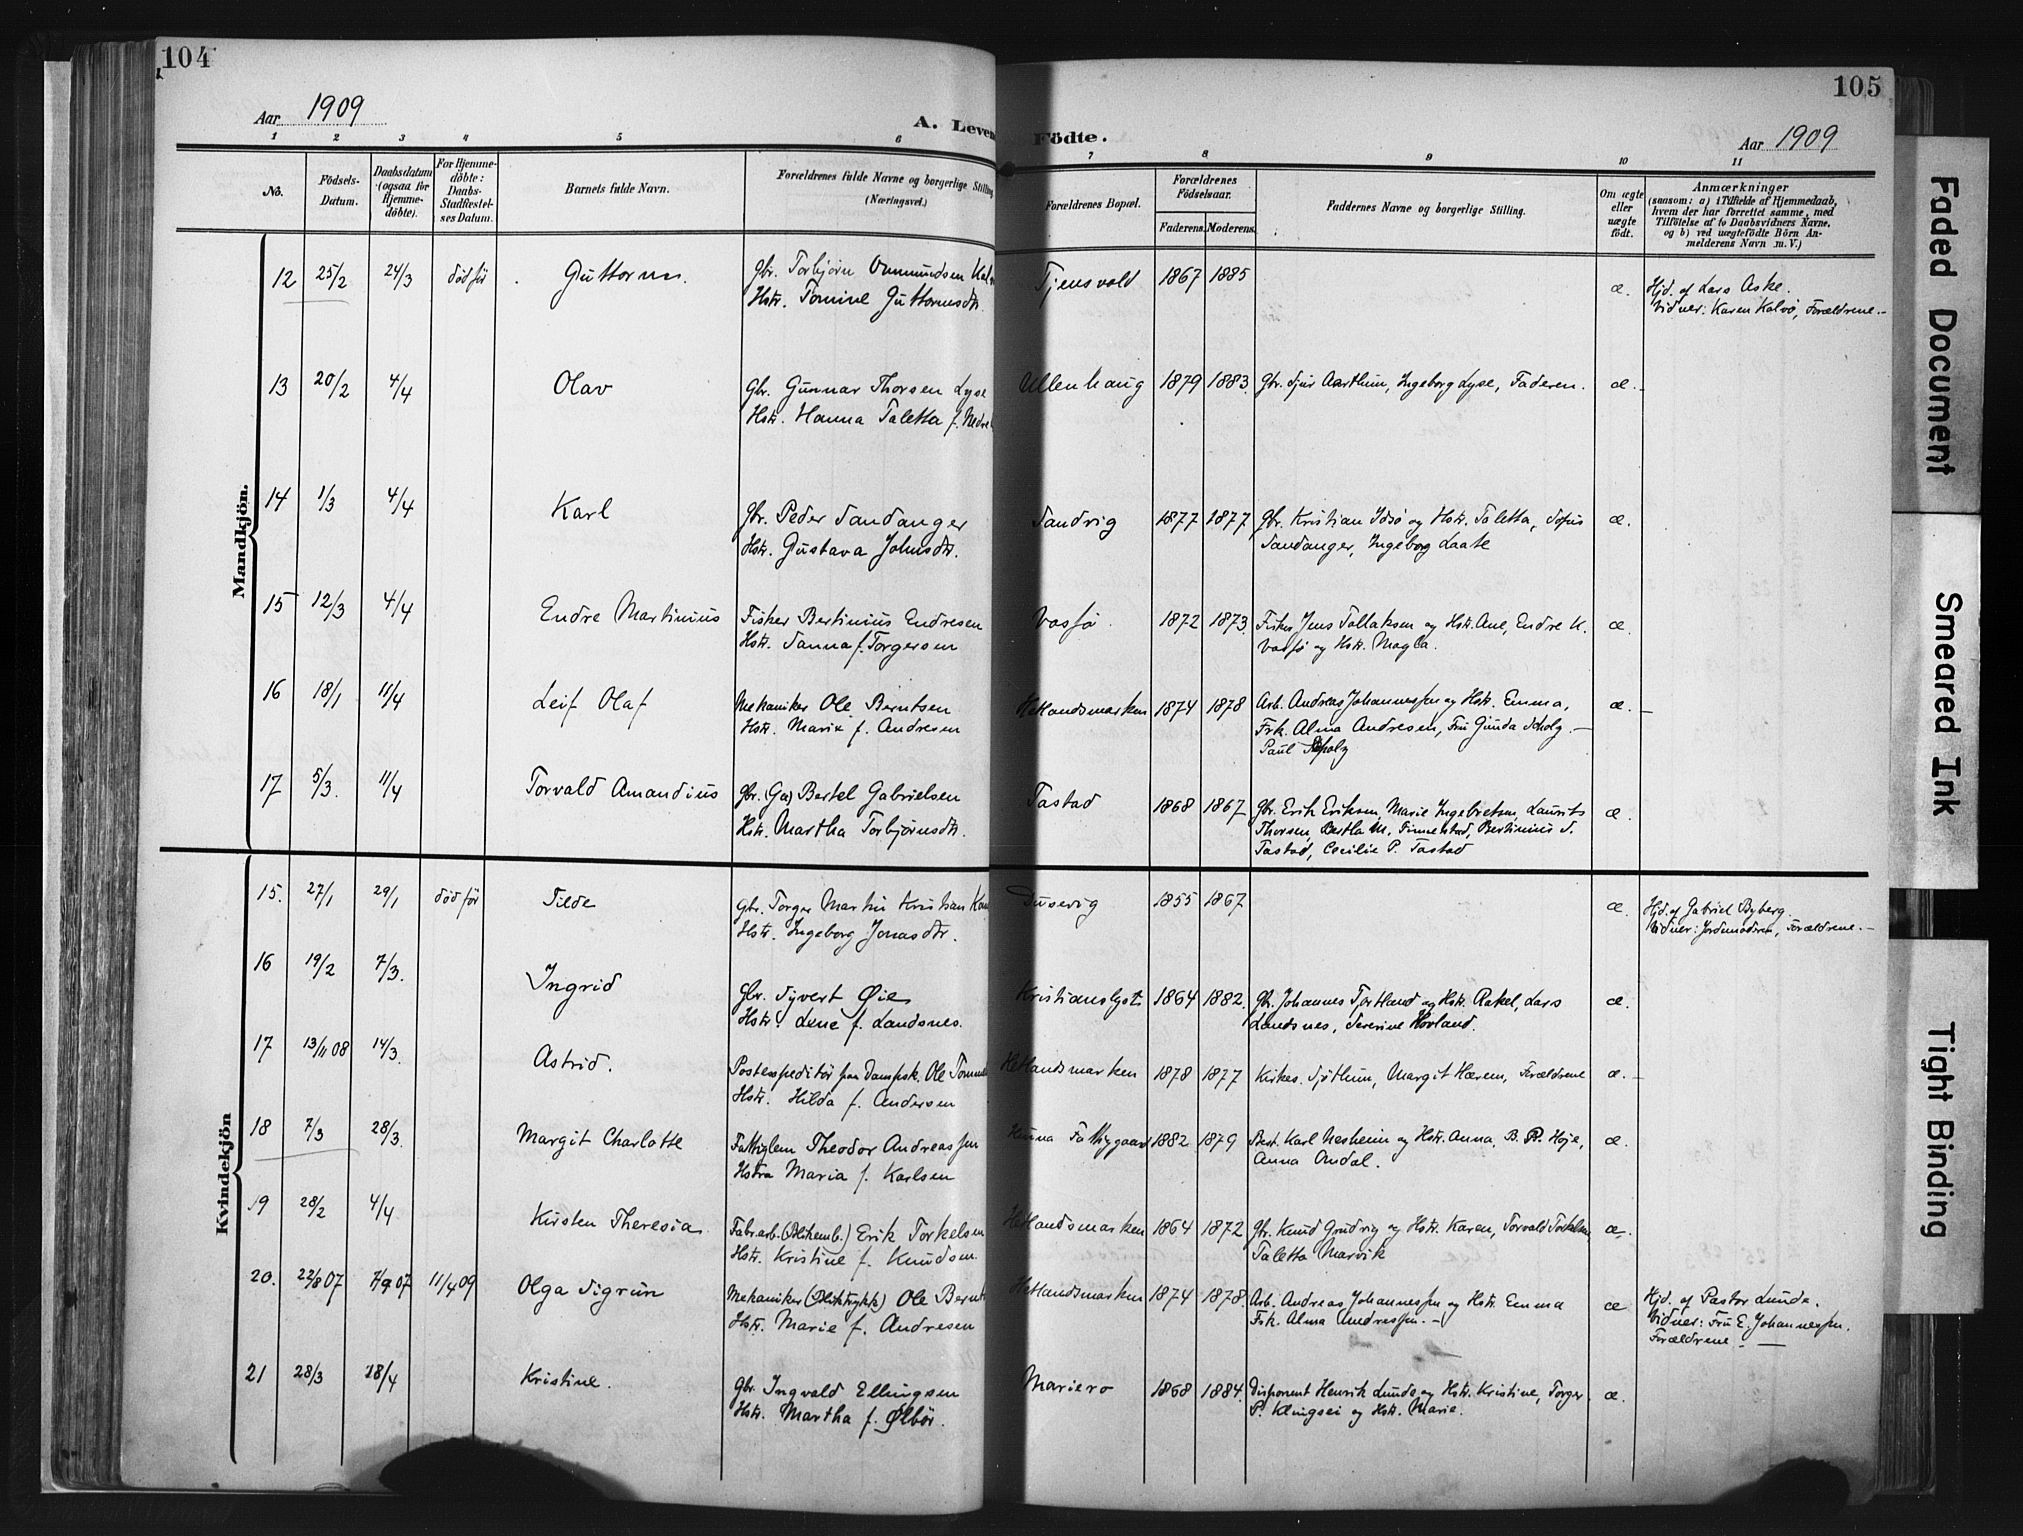 104
Aar 1909
A. Leven
1 2 3 4 5 6
No.
Födsels-
Datum.
Daabsdatum
(ogsaa for
Hjemme-
döbte).
For Hjemme-
döbte:
Daabs-
Stadfæstel-
ses Datum.
Barnets fulde Navn.
Forældrenes fulde Navne og borgerlige Stilling
(Næringsvei.)
Mandkjön.
12 25/2 24/3 død før Guttorm. Gbr. Torbjørn Ommundsen
Hstr. Tomine Guttormsdtr.
13 20/2 4/4 Olav Gbr. Gunnar Thorsen Lyse
Hstr. Hanna Taletta f. Nedre
14 1/3 4/4 Karl Gbr. Peder Sandanger
Hstr. Gustava Johnsdtr.
15 12/3 4/4 Endre Martinius Fisker Bertinius Endresen
Hstr. Sanna f. Torgersen
16 18/1 11/4 Leif Olaf Mekaniker Ole Berntsen
Hstr. Marie f. Andresen
17 5/3. 11/4 Torvald Amandius Gbr. (Ga) Bertel Gabrielsen
Hstr. Martha Torbjørnsdtr.
Kvindekjön
15. 27/1 29/1 død før Tilde Gbr. Torger Martin Kristian
Hstr. Ingeborg Jonasdtr.
16 19/2 7/3. Ingrid Gbr. Syvert Øie
Hstr. Lene f. Landsnes.
17 13/11 08 14/3. Astrid. Postexpeditør paa Dampsk. Ole
Hstr. Hilda f. Andersen
18 7/3 28/3. Margit Charlotte Fattiglem Theodor Andreassen
Hstra Maria f. Karlsen
19 28/2 4/4 Kirsten Theresia Fabr.arb. (Blikemb.) Erik Torkelsen
Hstr. Kristine f. Knudsen.
20. 22/8 07 7/9 07 11/4 09 Olga Sigrun Mekaniker (Bliktrykk) Ole Bernt
Hstr. Marie f. Andresen
21 28/3 18/4 Kristine. Gbr. Ingvald Ellingsen
Hstr. Martha f. Ølbör.
105
Födte.
Aar 1909
7 8 9 10 11
Forældrenes Bopæl.
Forældrenes
Födselsaar.
Faderens. Moderens.
Faddernes Navne og borgerlige Stilling.
Om ægte
eller
uægte
født.
Anmærkninger
(saasom: a) i Tilfælde af Hjemmedaab,
hvem der har forrettet samme, med
Tilföielse af to Daabsvidners Navne,
og b) ved uægtefödte Börn An-
melderens Navn m. V.)
Tjensvold 1867 1885 æ. Hjd. af Lars Aske.
Vidner: Karen Kalvø, Forældrene.-
Ullenhaug 1879 1883. Gbr. Sjur Aarthun, Ingeborg Lyse, Faderen. æ.-
Sandvig 1877 1877 Gbr. Kristian Idsø og Hstr. Taletta, Sofus æ.
Sandanger, Ingeborg Laate
Vasfø. 1872 1873. Fisker Jens Tollaksen og Hstr. Ane, Endre K. æ.
Vasfø og Hstr. Magla.
Hetlandsmarken 1874 1878 Arb. Andreas Johannessen og Hstr. Emma, æ.
Frk. Alma Andresen, Fru Gunda Scholz.-
Paul Scholz
Tastad 1868 1867 Gbr. Erik Eriksen, Marie Ingebretsen, Laurits æ.
Thorsen, Bertha M. Finnestad, Bertinius S.
Tastad, Cecilie P. Tastad
Dusevig 1855 1867 æ. Hjd. af Gabriel Byberg.
Vidner: Jordmoderen, Forældrene.-
Kristianslyst 1864 1882. Gbr. Johannes Tjortland og Hstr. Rakel, Lars æ.
Landsnes, Severine Hovland.
Hetlandsmarken 1878 1877 Kirkes. Sjöthun, Margit Hærem, Forældrene æ.-
Hinna Fattiggaard 1882 1879 Best. Karl Nesheim og Hstr. Anna, B. R. Høie, æ.
Anna Omdal.
Hetlandsmarken 1864 1872 Gbr. Knud Grudvig og Hstr. Karen, Torvald Torkelsen æ.
Taletta Marvik
Hetlandsmarken 1874 1878. Arb. Andreas Johannessen og Hstr. Emma æ Hjd. af Pastor Lunde.
Frk. Alma Andressen.- Vidner: Fru E. Johannessen.
Forældrene.-
Mariero 1868 1884. Disponent Henrik Lunde og Hstr. Kristine, Torger æ.
P. Klingsei og Hstr. Marie.
Faded Document
Smeared Ink
Tight Binding